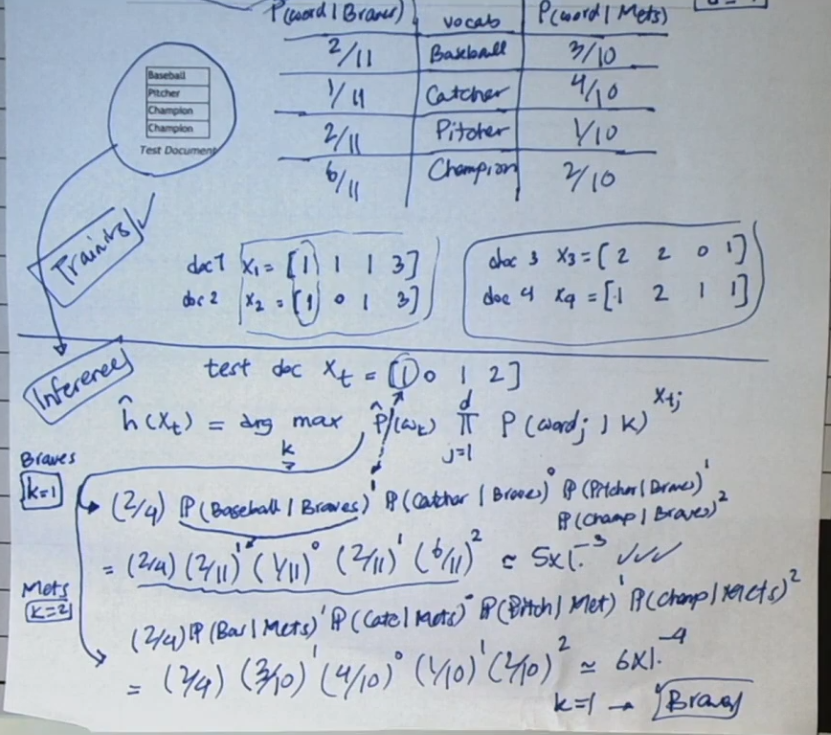 P(word | Braves) vocab P(word | Mets)
2/11 Baseball 3/10
1/11 Catcher 4/10
2/11 Pitcher 1/10
6/11 Champion 2/10
Baseball
Pitcher
Champion
Champion
Test Document
Training
doc 1 x₁ = [1 1 1 3]
doc 2 x₂ = [1 0 1 3]
doc 3 x₃ = [2 2 0 1]
doc 4 x₄ = [1 2 1 1]
Inference
test doc xₜ = [1 0 1 2]
ĥ(xₜ) = arg max P̂(ωₖ) ∏ P(wordⱼ | k)^xₜⱼ
k
j=1
d
Braves
k=1
(2/4) P(Baseball | Braves)¹ P(Catcher | Braves)⁰ P(Pitcher | Braves)¹
P(Champ | Braves)²
= (2/4) (2/11)¹ (1/11)⁰ (2/11)¹ (6/11)² ≃ 5x1.⁻³ ✓✓✓
Mets
k=2
(2/4) P(Bas | Mets)¹ P(Catc | Mets)⁰ P(Pitch | Met)¹ P(Champ | Mets)²
= (2/4) (3/10)¹ (4/10)⁰ (1/10)¹ (2/10)² ≃ 6x1.⁻⁴
k=1 → Braves